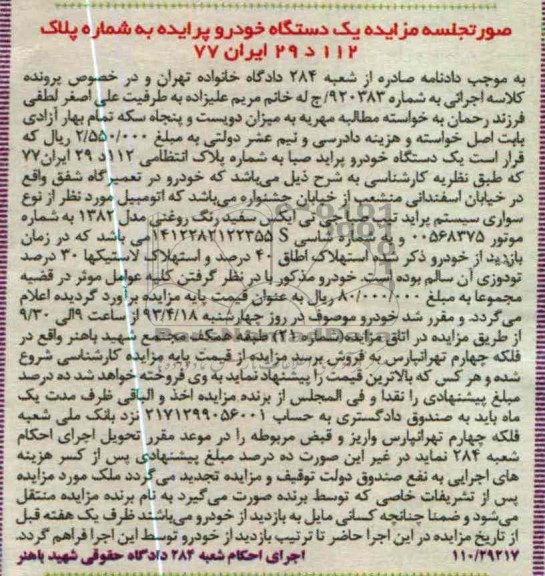 صورتجلسه مزایده یک دستگاه خودرو پرایده به شماره پلاک
۱۱۲ د ۲۹ ایران ۷۷
به موجب دادنامه صادره از شعبه ۲۸۴ دادگاه خانواده تهران و در خصوص پرونده
کلاسه اجرائی به شماره ۹۲۰۳۸۳/ج له خانم مریم علیزاده به طرفیت علی اصغر لطفی
فرزند رحمان به خواسته مطالبه مهریه به میزان دویست و پنجاه سکه تمام بهار آزادی
بابت اصل خواسته و هزینه دادرسی و نیم عشر دولتی به مبلغ ۲/۵۵۰/۰۰۰ ریال که
قرار است یک دستگاه خودرو پراید صبا به شماره پلاک انتظامی ۱۱۲د ۲۹ ایران۷۷
که طبق نظریه کارشناسی به شرح ذیل می‌باشد که خودرو در تعمیرگاه شفق واقع
در خیابان اسفندانی منشعب از خیابان جشنواره می‌باشد که اتومبیل مورد نظر از نوع
سواری سیستم پراید تیپ جی تی ایکس سفید رنگ روغنی مدل ۱۳۸۲ به شماره
موتور ۰۰۵۶۸۳۷۵ و به شماره شاسی S ۱۴۱۲۲۸۲۱۲۲۳۵۵ می باشد که در زمان
بازدید از خودرو ذکر شده استهلاک اطاق ۴۰ درصد و استهلاک لاستیکها ۳۰ درصد
تودوزی آن سالم بوده است. خودرو مذکور با در نظر گرفتن کلیه عوامل موثر در قضیه
مجموعا به مبلغ ۸۰/۰۰۰/۰۰۰ ریال به عنوان قیمت پایه مزایده برآورد گردیده اعلام
می‌گردد. و مقرر شد خودرو موصوف در روز چهارشنبه ۹۳/۴/۱۸ از ساعت ۹ الی ۹/۳۰
از طریق مزایده در اتاق مزایده (شماره ۲۱) طبقه همکف مجتمع شهید باهنر واقع در
فلکه چهارم تهرانپارس به فروش برسد مزایده از قیمت پایه مزایده کارشناسی شروع
شده و هر کس که بالاترین قیمت را پیشنهاد نماید به وی فروخته خواهد شد ده درصد
مبلغ پیشنهادی را نقدا و فی المجلس از برنده مزایده اخذ و الباقی ظرف مدت یک
ماه باید به صندوق دادگستری به حساب ۲۱۷۱۲۹۹۰۵۶۰۰۱ نزد بانک ملی شعبه
فلکه چهارم تهرانپارس واریز و قبض مربوطه را در موعد مقرر تحویل اجرای احکام
شعبه ۲۸۴ نماید در غیر این صورت ده درصد مبلغ پیشنهادی پس از کسر هزینه
های اجرایی به نفع صندوق دولت توقیف و مزایده تجدید می‌گردد ملک مورد مزایده
پس از تشریفات خاصی که توسط برنده صورت می‌گیرد به نام برنده مزایده منتقل
می‌شود و ضمنا چنانچه کسانی مایل به بازدید از خودرو می‌باشند ظرف یک هفته قبل
از تاریخ مزایده در این اجرا حاضر تا ترتیب بازدید از خودرو توسط این اجرا فراهم گردد.
۱۱۰/۲۹۲۱۷ اجرای احکام شعبه ۲۸۴ دادگاه حقوقی شهید باهنر